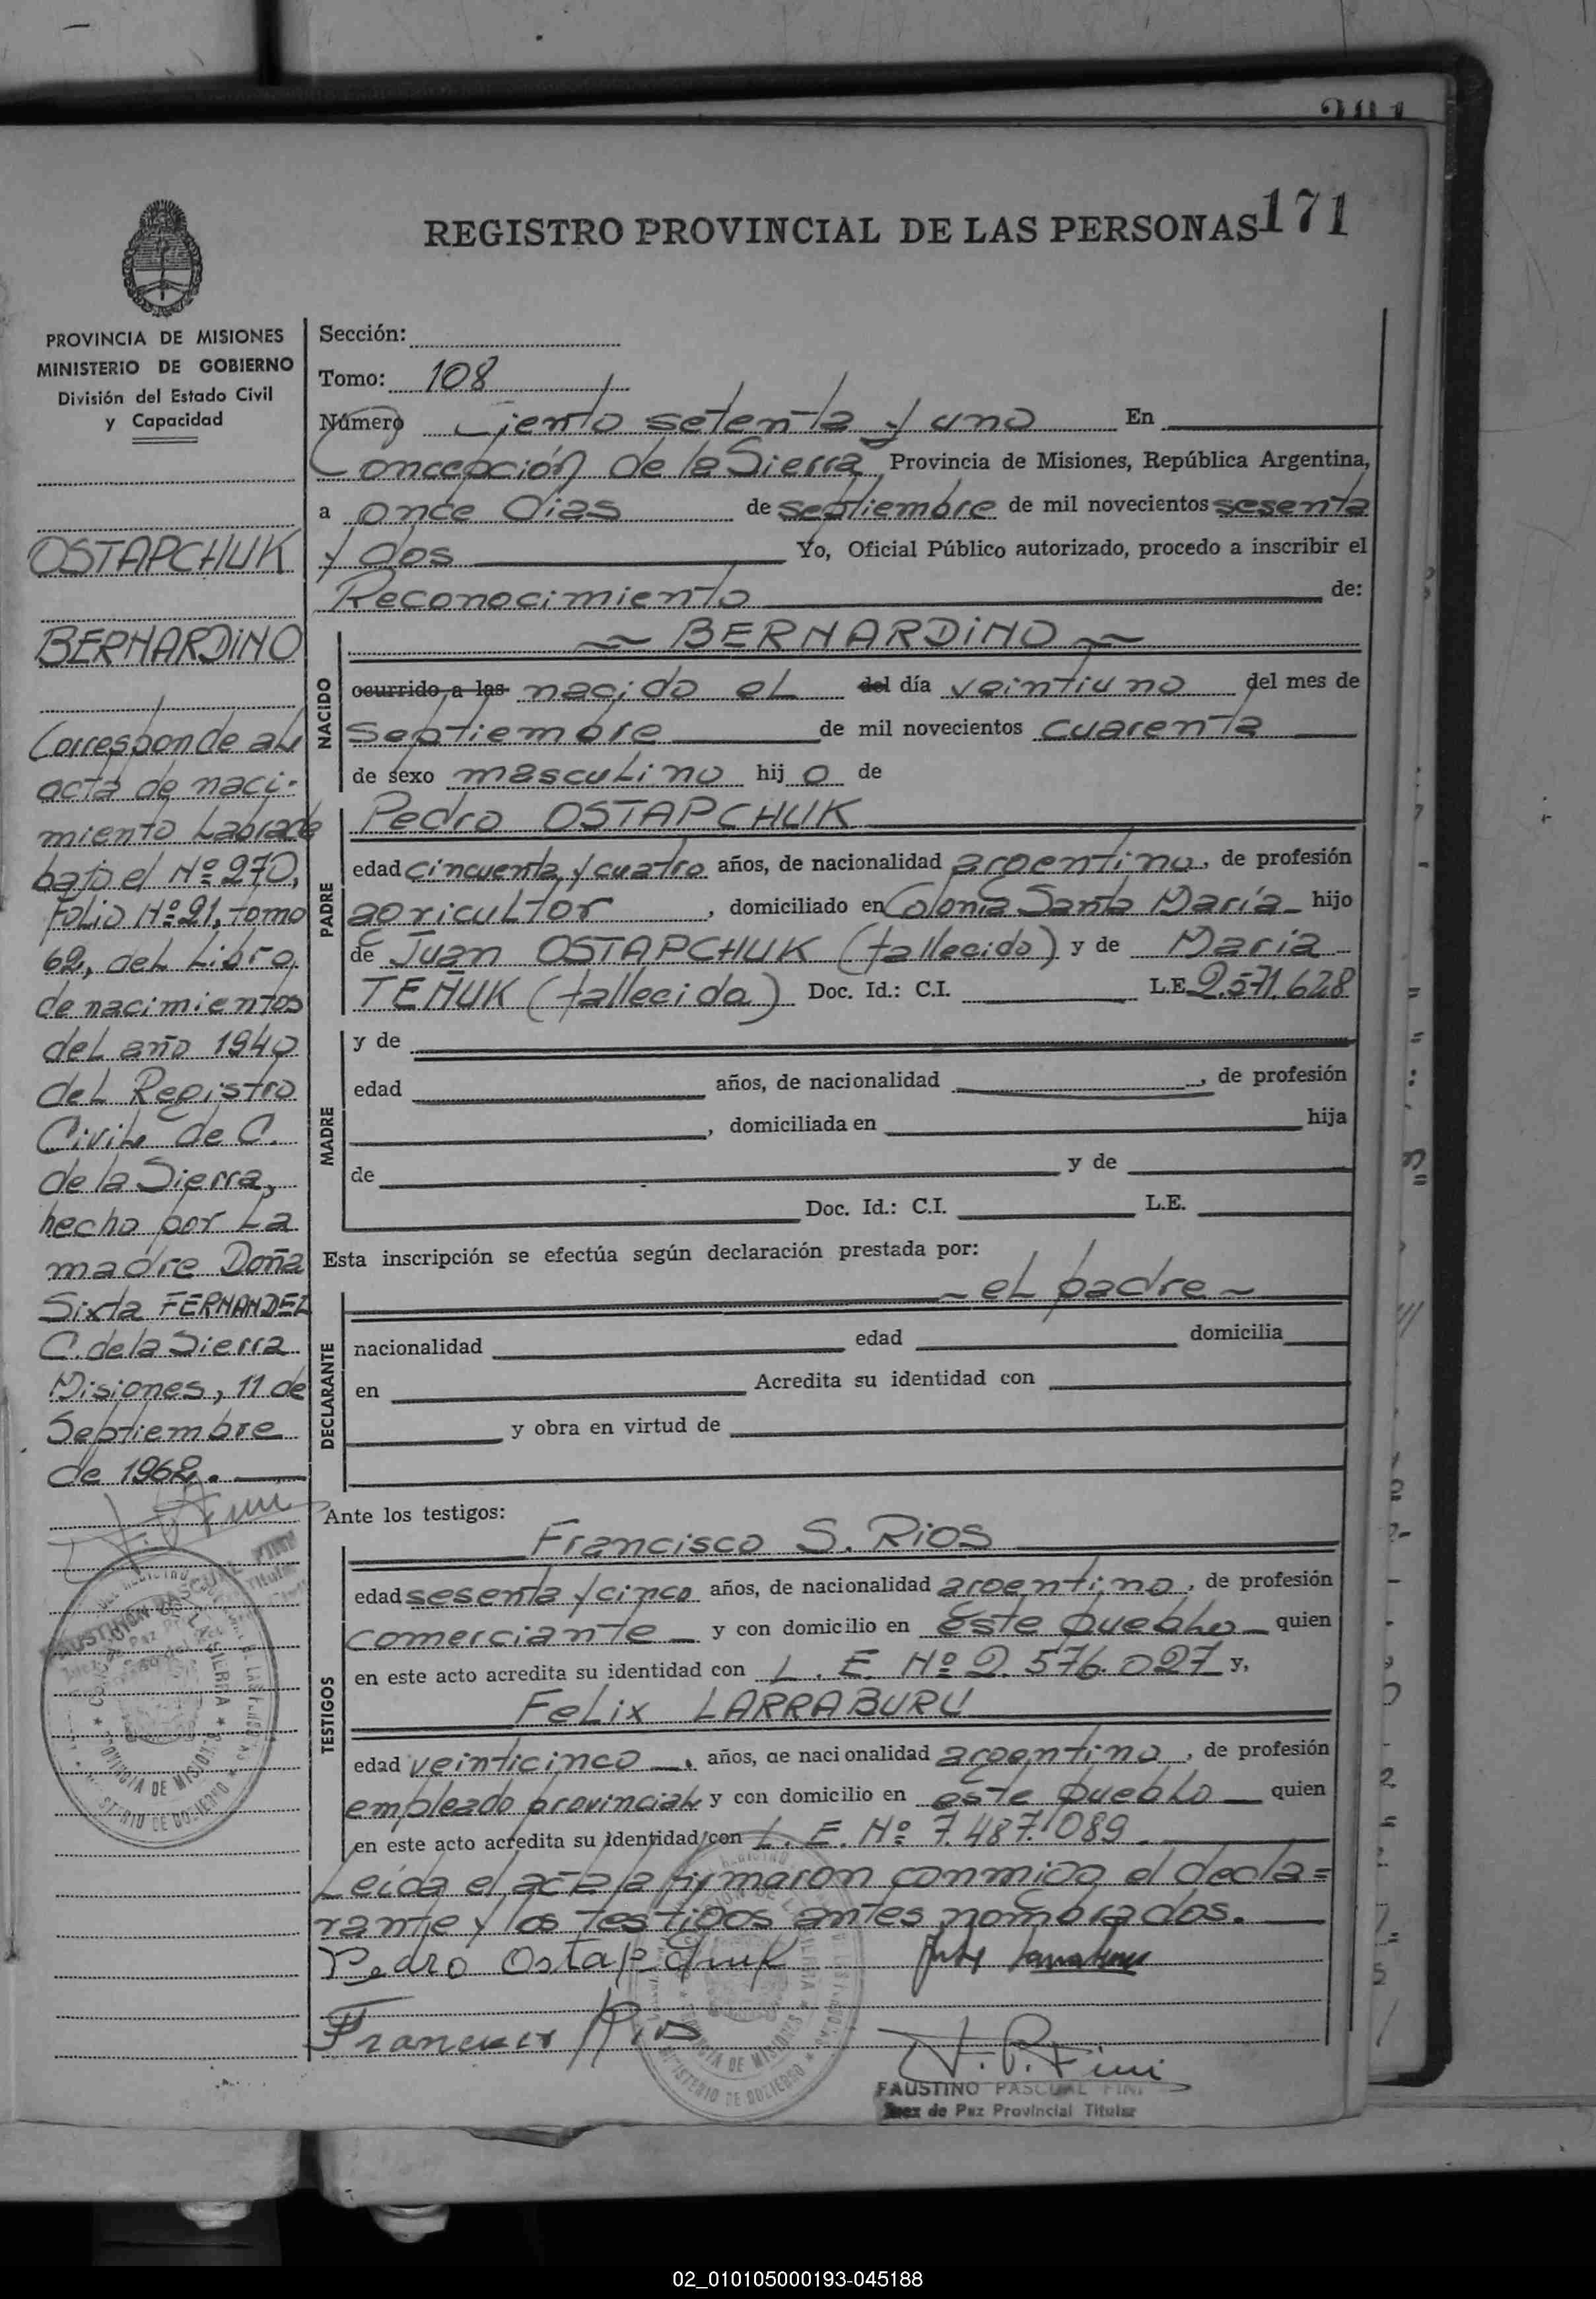 171
REGISTRO PROVINCIAL DE LAS PERSONAS
PROVINCIA DE MISIONES
MINISTERIO DE GOBIERNO
División del Estado Civil
y Capacidad
OSTAPCHUK
BERNARDINO
Corresponde al
acta de naci-
miento Labrada
bajo el Nº 270,
Folio Nº 21, tomo
62, del Libro
de nacimientos
del año 1940
del Registro
Civil de C.
de la Sierra,
hecho por La
madre Doña
Sixta FERNANDEZ
C. de la Sierra
Misiones, 11 de
Septiembre
de 1962.
Sección:
Tomo: 108
Número Ciento setenta y uno En
Concepción de la Sierra Provincia de Misiones, República Argentina,
a once días de septiembre de mil novecientos sesenta
y dos Yo, Oficial Público autorizado, procedo a inscribir el
Reconocimiento de:
NACIDO
BERNARDINO
ocurrido, a las nacido el del día veintiuno del mes de
Septiembre de mil novecientos cuarenta
de sexo masculino hijo de
PADRE
Pedro OSTAPCHUK
edad cincuenta y cuatro años, de nacionalidad argentina, de profesión
agricultor, domiciliado en Colonia Santa María hijo
de Juan OSTAPCHUK (fallecido) y de María
TEÑUK (fallecida) Doc. Id.: C.I. L.E. 2.571.628
MADRE
y de
edad años, de nacionalidad , de profesión
, domiciliada en hija
de y de
Doc. Id.: C.I. L.E.
Esta inscripción se efectúa según declaración prestada por:
DECLARANTE
el padre
nacionalidad edad domicilia
en Acredita su identidad con
y obra en virtud de
Ante los testigos:
TESTIGOS
Francisco S. RIOS
edad sesenta y cinco años, de nacionalidad argentino, de profesión
comerciante y con domicilio en este pueblo quien
en este acto acredita su identidad con L. E. Nº 2.576.027 y,
Felix LARRABURU
edad veinticinco, años, de nacionalidad argentino, de profesión
empleado provincial y con domicilio en este pueblo quien
en este acto acredita su identidad con L. E. Nº 7.487.089
Leída el acta la firmaron conmigo el decla=
rante y los testigos antes nombrados.
Pedro Ostapchuk
Francisco Rios
F. P. Fini
FAUSTINO PASCUAL FINI
Juez de Paz Provincial Titular
02_010105000193-045188